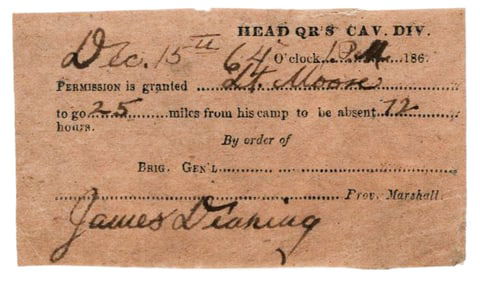 HEAD QR'S CAV. DIV.
Dec. 15th 64 O'clock 1 P.M. 186
PERMISSION is granted Lt. Moore
to go 25 miles from his camp to be absent 72
hours.
By order of
BRIG. GEN'L
Prov. Marshall.
James Dearing